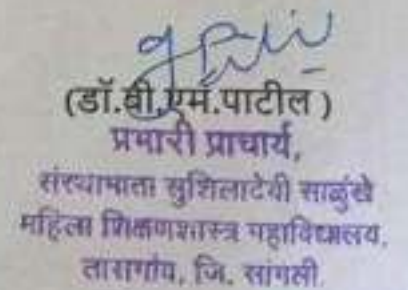 (डॉ.बी.एम.पाटील )
प्रभारी प्राचार्य,
संस्थामाता सुशिलादेवी साळुंखे
महिला शिक्षणशास्त्र महाविद्यालय,
जि. सांगली.